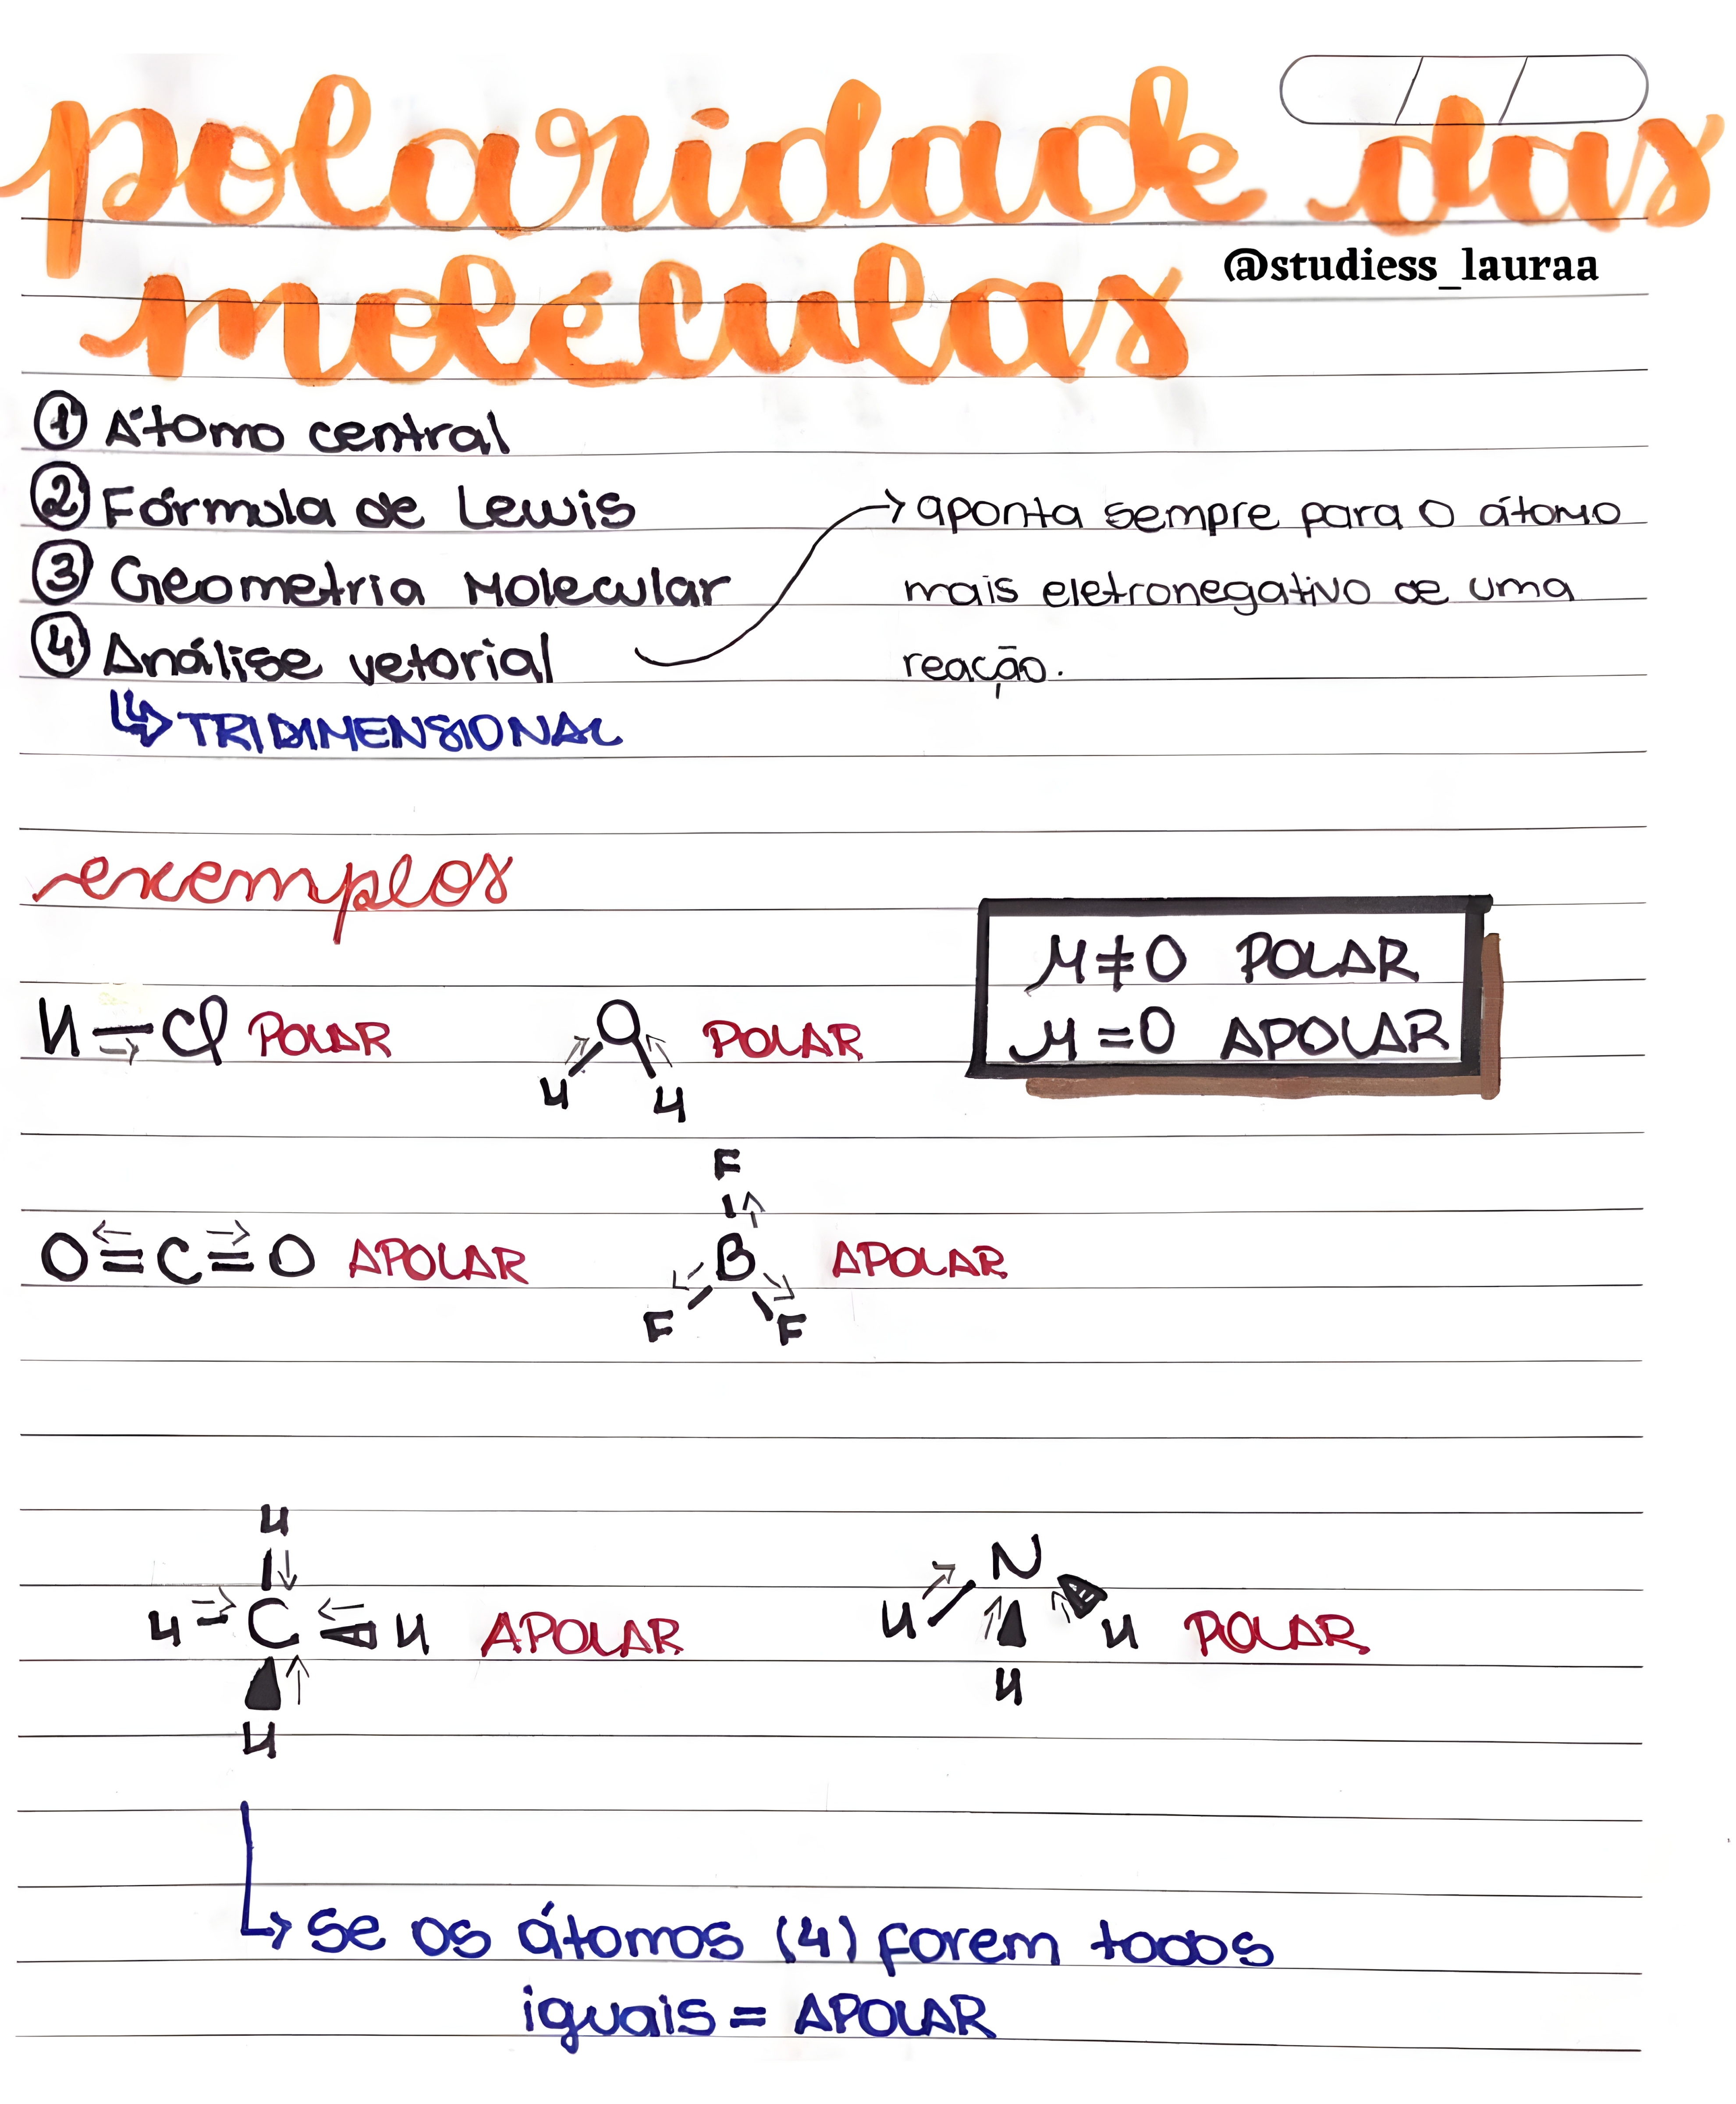 polaridade das
moléculas
@studiess_lauraa
① Átomo central
② Fórmula de Lewis
③ Geometria Molecular
④ Análise vetorial
↳ TRIDIMENSIONAL
→ aponta sempre para o átomo
mais eletronegativo de uma
reação.
exemplos
μ ≠ 0 POLAR
μ = 0 APOLAR
H — Cl POLAR
O
H H
POLAR
O = C = O APOLAR
F
B
F F
APOLAR
H
H C H APOLAR
H
N
H H POLAR
H
↳ Se os átomos (4) forem todos
iguais = APOLAR